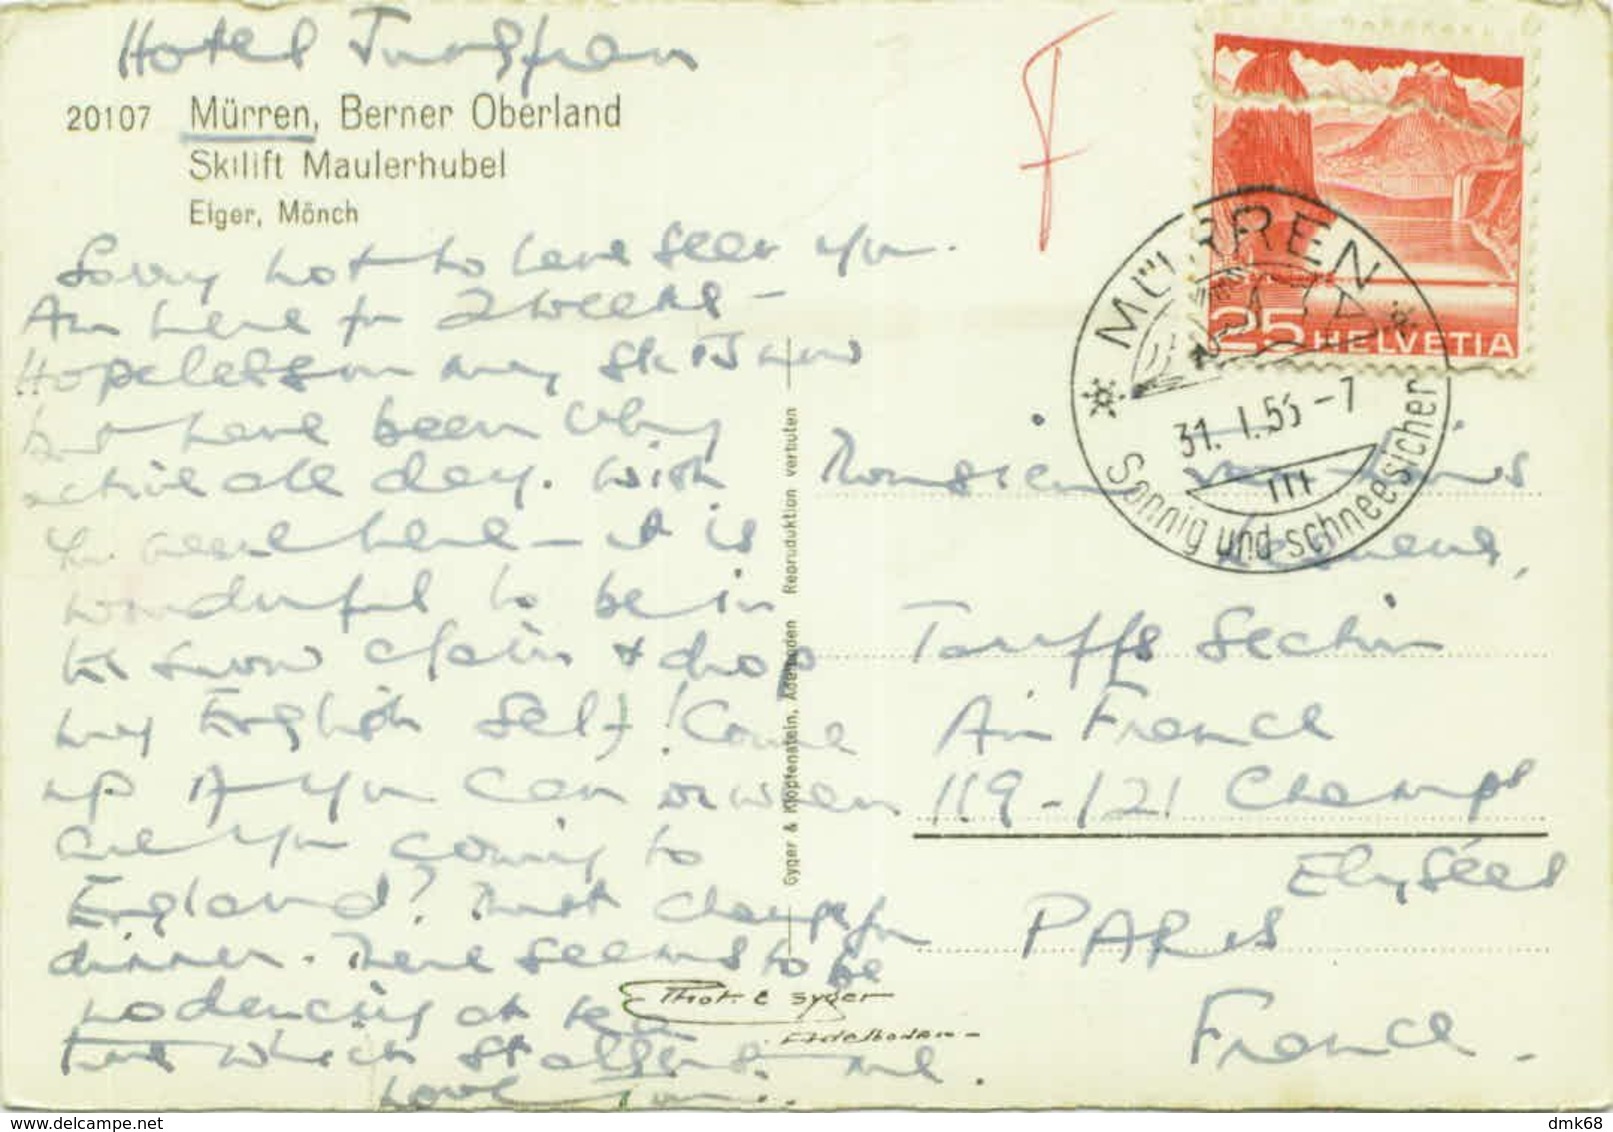 Hotel Jungfrau
20107 Mürren, Berner Oberland
Skilift Maulerhubel
Eiger, Mönch
Sorry not to have seen you.
Am here for 2 weeks -
Hopeless on my skis now
but have been very
active all day. With
here - it is
wonderful to be in
the snow again & drop
my English self! Come
up if you can or when
are you coming to
England? Must change for
dinner. There seems to be
no dancing at
which me.
Love
Gyger & Klopfenstein, Adelboden Reproduktion verboten
Phot. E Gyger
Adelboden-
F
25 HELVETIA
MÜRREN
31. 1.55-7
III
Sonnig und schneesicher
Monsieur
Tariffs Section
Air France
119-121 Champs
Elysées
PARIS
France.
delcampe.net
dmk68